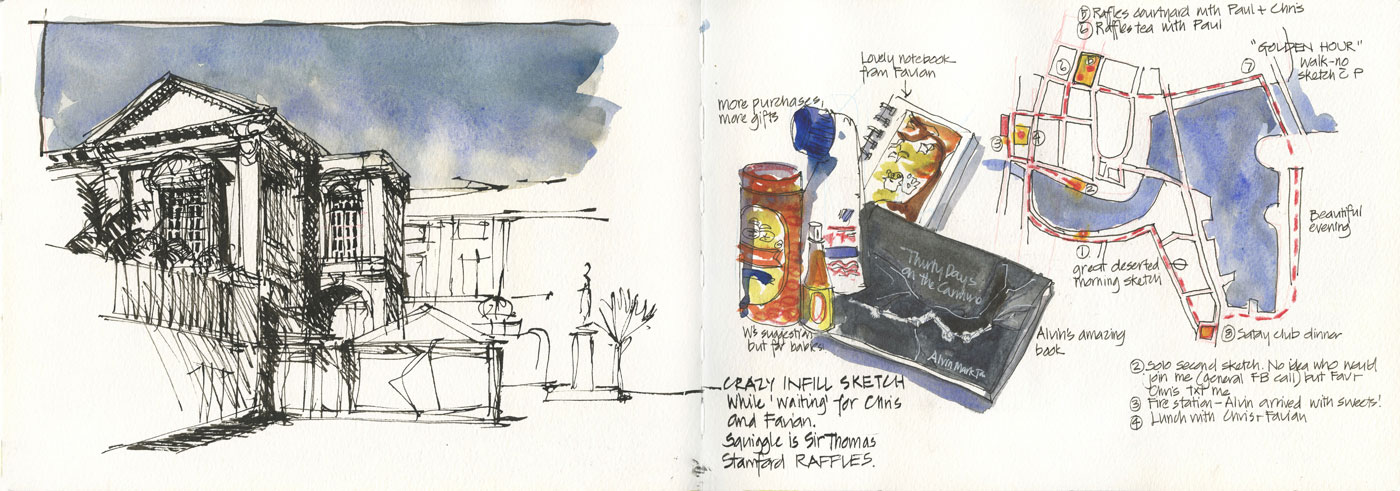 more purchases,
more gifts
Lovely notebook
from Favian
⑤ Raffles courtyard with Paul + Chris
⑥ Raffles tea with Paul
"GOLDEN HOUR"
walk-no
sketch
P
⑦
⑥
③
④
②
①
great deserted
morning sketch
Beautiful
evening
⑧ Satay club dinner
Thirty Days
on the
Alvin Mark
Alvin's amazing
book
W's suggestion
but for babies
CRAZY INFILL SKETCH
While 'waiting' for Chris
and Favian.
Squiggle is Sir Thomas
Stamford RAFFLES.
② Solo second sketch. No idea who would
join me (general FB call) but Fav +
Chris txt me
③ Fire station - Alvin arrived with sweets!
④ Lunch with Chris + Favian